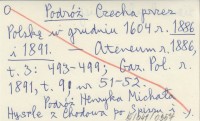 Podróż Czecha przez
Polskę w grudniu 1604 r. 1886
i 1891. — Ateneum r. 1886,
t. 3: 493-499; Gaz. Pol. r.
1891, t. 91 nr 51-52.
Podróż Henryka Michała
Hyzrle z Chodowa po